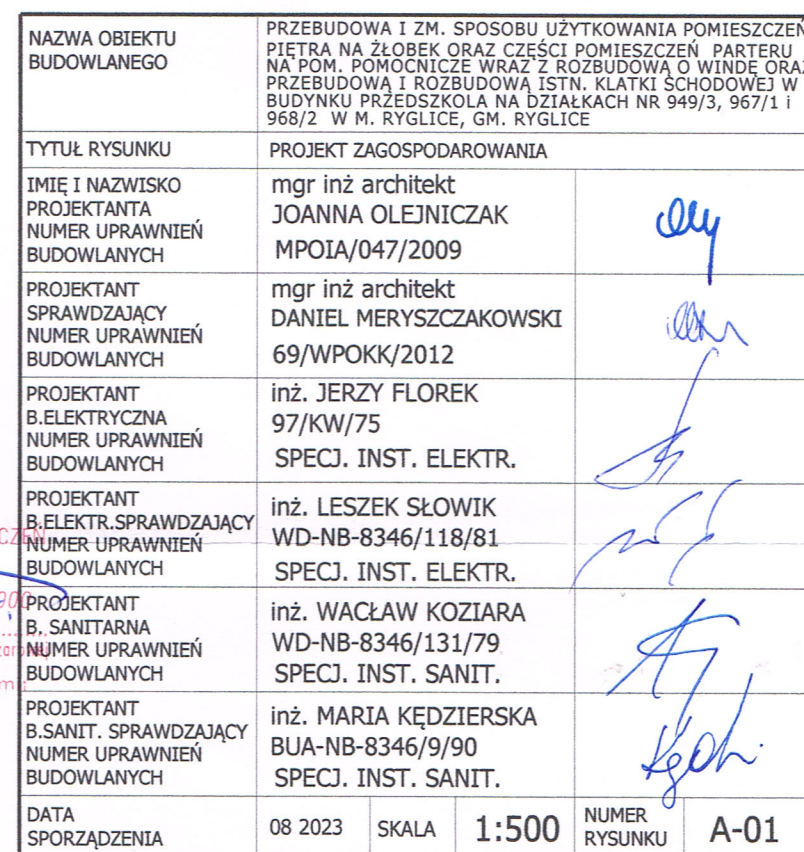 NAZWA OBIEKTU
BUDOWLANEGO
PRZEBUDOWA I ZM. SPOSOBU UŻYTKOWANIA POMIESZCZEŃ
PIĘTRA NA ŻŁOBEK ORAZ CZĘŚCI POMIESZCZEŃ PARTERU
NA POM. POMOCNICZE WRAZ Z ROZBUDOWĄ O WINDĘ ORAZ
PRZEBUDOWĄ I ROZBUDOWĄ ISTN. KLATKI SCHODOWEJ W
BUDYNKU PRZEDSZKOLA NA DZIAŁKACH NR 949/3, 967/1 i
968/2 W M. RYGLICE, GM. RYGLICE
TYTUŁ RYSUNKU
PROJEKT ZAGOSPODAROWANIA
IMIĘ I NAZWISKO
PROJEKTANTA
NUMER UPRAWNIEŃ
BUDOWLANYCH
mgr inż architekt
JOANNA OLEJNICZAK
MPOIA/047/2009
PROJEKTANT
SPRAWDZAJĄCY
NUMER UPRAWNIEŃ
BUDOWLANYCH
mgr inż architekt
DANIEL MERYSZCZAKOWSKI
69/WPOKK/2012
PROJEKTANT
B.ELEKTRYCZNA
NUMER UPRAWNIEŃ
BUDOWLANYCH
inż. JERZY FLOREK
97/KW/75
SPECJ. INST. ELEKTR.
PROJEKTANT
B.ELEKTR.SPRAWDZAJĄCY
NUMER UPRAWNIEŃ
BUDOWLANYCH
inż. LESZEK SŁOWIK
WD-NB-8346/118/81
SPECJ. INST. ELEKTR.
PROJEKTANT
B. SANITARNA
NUMER UPRAWNIEŃ
BUDOWLANYCH
inż. WACŁAW KOZIARA
WD-NB-8346/131/79
SPECJ. INST. SANIT.
PROJEKTANT
B.SANIT. SPRAWDZAJĄCY
NUMER UPRAWNIEŃ
BUDOWLANYCH
inż. MARIA KĘDZIERSKA
BUA-NB-8346/9/90
SPECJ. INST. SANIT.
DATA
SPORZĄDZENIA
08 2023
SKALA
1:500
NUMER
RYSUNKU
A-01